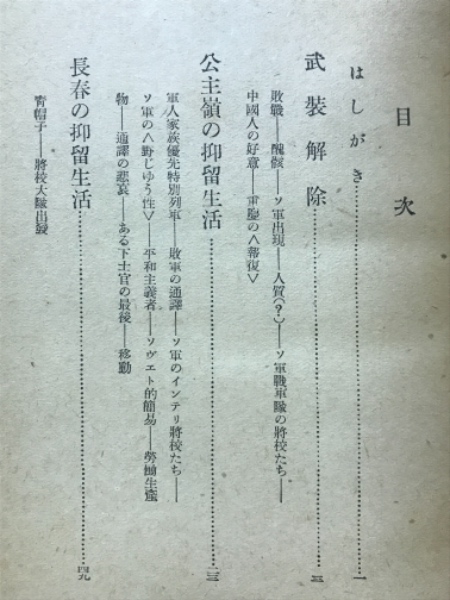 目次
はしがき……一
武裝解除……三
敗戰——醜骸——ソ軍出現——人質(?)——ソ軍戰車隊の將校たち——
中國人の好意——重慶の＜報復＞
公主嶺の抑留生活……二三
軍人家族優先特別列車——敗軍の通譯——ソ軍のインテリ將校たち——
ソ軍の＜野じゆう性＞——平和主義者——ソヴェト的簡易——勞働生產
物——通譯の悲哀——ある下士官の最後——移動
長春の抑留生活……四九
靑帽子——將校大隊出發